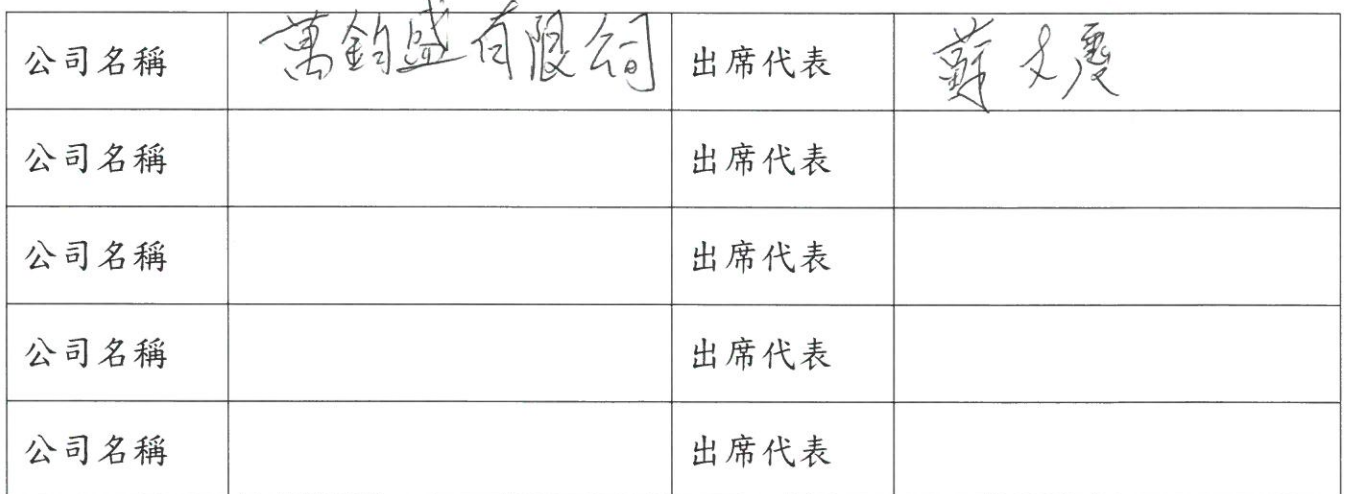 公司名稱 萬鈞盛有限公司 出席代表 蘇文慶
公司名稱 出席代表
公司名稱 出席代表
公司名稱 出席代表
公司名稱 出席代表